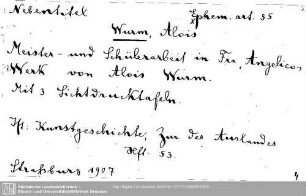 Nebentitel
Ephem. art. 55
Wurm, Alois
Meister- und Schülerarbeit in Fra Angelicos
Werk von Alois Wurm.
Mit 3 Lichtdrucktafeln.
Kunstgeschichte, Zur des Auslandes
Heft 53.
Straßburg 1907